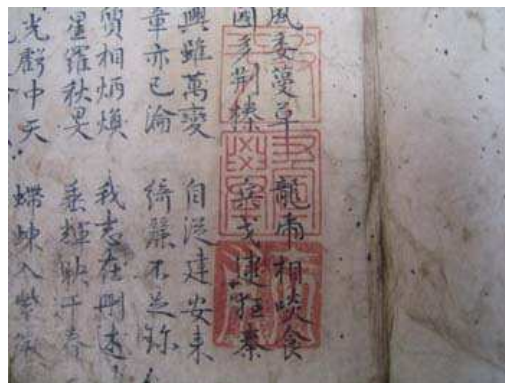 風委蔓草 龍虎相啖食
國多荆榛 兵戈逮狂秦
興雖萬變 自從建安来
章亦已淪 綺麗不足珎
質相炳焕 我志在刪述
星羅秋旻 垂輝映千春
光虧中天 蝃蝀入紫微